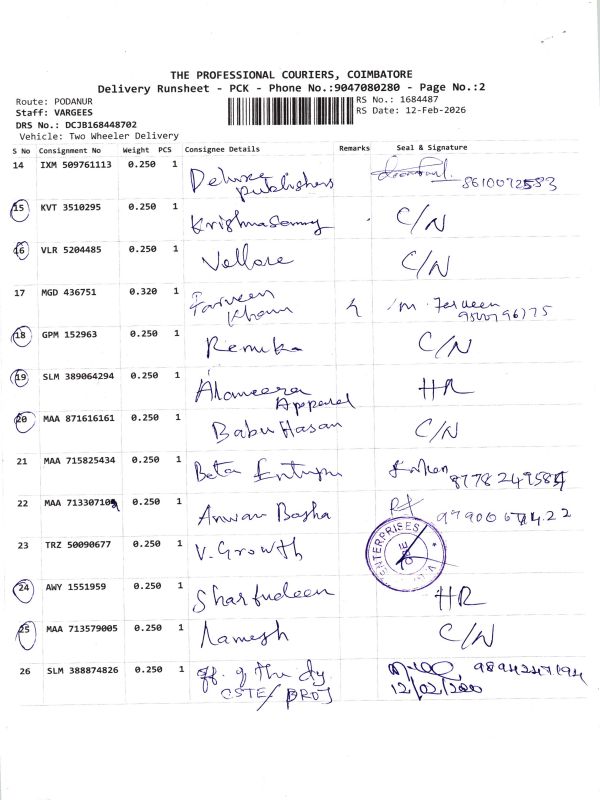 THE PROFESSIONAL COURIERS, COIMBATORE
Delivery Runsheet - PCK - Phone No.:9047080280 - Page No.:2
Route: PODANUR
Staff: VARGEES
DRS No.: DCJB168448702
Vehicle: Two Wheeler Delivery
RS No.: 1684487
RS Date: 12-Feb-2026
S No Consignment No Weight PCS Consignee Details Remarks Seal & Signature
14 IXM 509761113 0.250 1 Deluxe Publishers 8610072583
15 KVT 3510295 0.250 1 Krishnasamy C/N
16 VLR 5204485 0.250 1 Vellore C/N
17 MGD 436751 0.320 1 Farveen Khan M. Farveen
18 GPM 152963 0.250 1 Renuka C/N
19 SLM 389064294 0.250 1 Alameera Apparel HR
20 MAA 871616161 0.250 1 Babu Hasan C/N
21 MAA 715825434 0.250 1 Beta
22 MAA 713307109 0.250 1 Anwar Basha
23 TRZ 50090677 0.250 1 V. Growth ENTERPRISES
24 AWY 1551959 0.250 1 Sharfudeen HR
25 MAA 713579005 0.250 1 Ramesh C/N
26 SLM 388874826 0.250 1 Off. of The dy CSTE/PROJ 9894247194